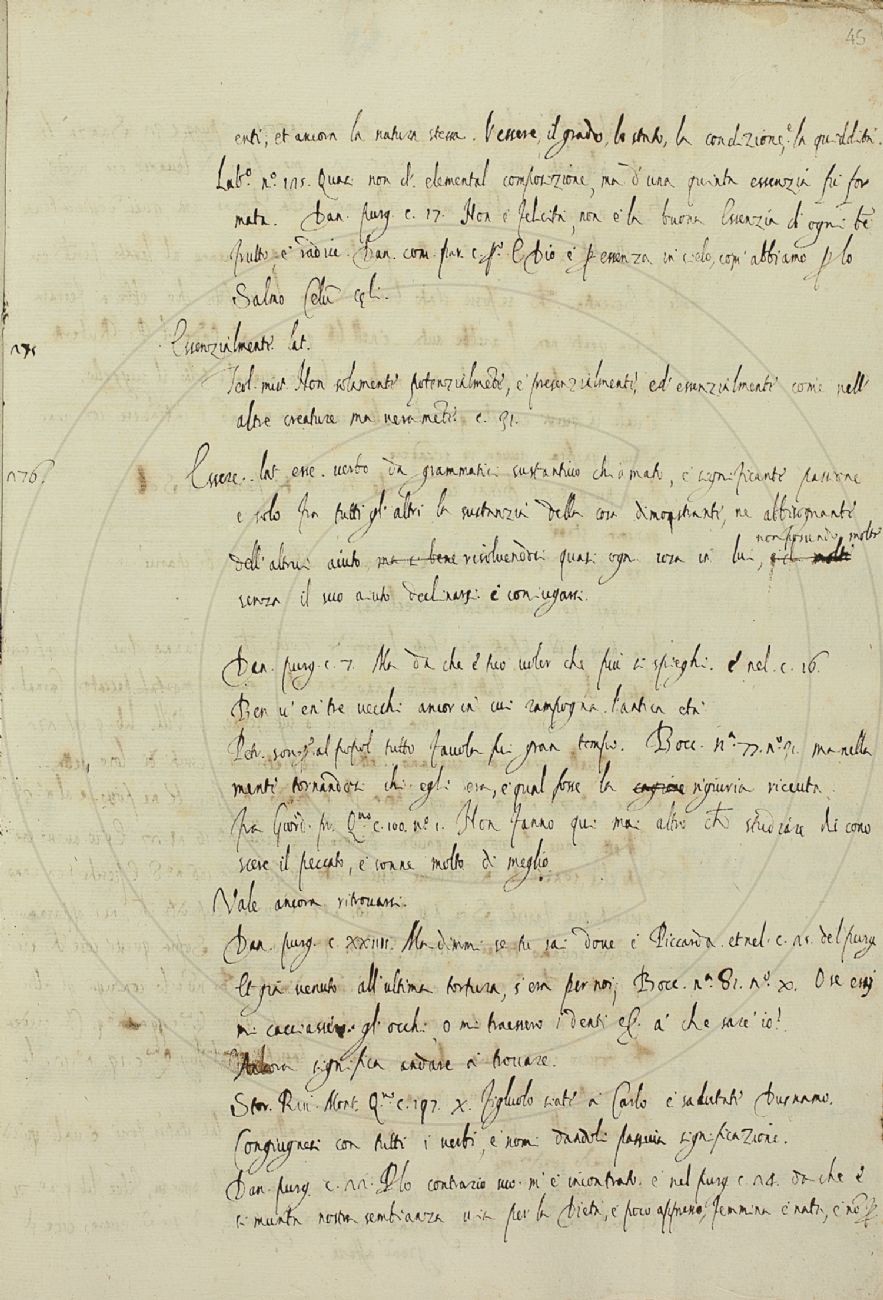 45
enti, et ancora la natura stessa. l'essere, il grado, lo stato, la condizione, e la quiddità.
Lab.o n.o 115. Quasi non d' elemental composizione, ma d'una quinta essenzia fu for
mata. Dan. purg. c. 17. Non è felicità, non è la buona Essenzia d'ogni bē
frutto, e radice. Dan. com. par. c. p.o E Dio è p essenza in cielo, com' abbiamo p lo
Salmo Celū celi.
175 Essenzialmente lat.
Non solamente potenzialmēte, e presenzialmente, ed' essenzialmente come nell'
altre creature ma veramēte. c. 31.
176 Essere. lat. esse. verbo da grammatici sustantivo chiamato, e significante passione
e solo fra tutti gl' altri la sustanzia della cosa dimostrante, ne abbisognante
non possendo molti
dell' altrui aiuto ma si bene risolvendosi quasi ogni cosa in lui, molti
senza il suo aiuto declinarsi e coniugarsi.
Dan. purg. c. 7. Ma da che è tuo voler che più si spieghi. e nel. c. 16.
Ben v' en' tre vecchi ancor in cui rampogna. l'antica età
Petr. son. al popol tutto favola fui gran tempo. Bocc. n.a 77. n.o 31. ma nella
mente tornandosi chi egli era, e qual fosse la cagione n'giuria ricevuta.
Fra Giord. pr. c. 100. n.o 1. Non fanno qui mai altro che studiare di cono
scere il peccato, e sonne molto di meglio
Vale ancora ritrovarsi.
Dan. purg. c. XXIIII. Ma dimmi se tu sai dove è Piccarda. et nel. c. 25. del purg
Et già venuto all'ultima tortura, s'era per noi; Bocc. n.a 81. n.o X. O se essi
mi cacciassero gl' occhi, o mi traessero i denti a' che sare' io!
Talora significa andare a trovare.
Stor. Rin. Mont. c. 197. X. figliuolo siate a Carlo e salutate Dusnamo.
Congiugnesi con tutti i verbi, e nomi dandoli passiva significazione.
Dan. purg. c. 22. Plo contrario suo m' è incontrato. e nel purg c. 24. da che è
si munta nostra sembianza via per la Dieta, e poco appresso, femmina è nata, e nō p